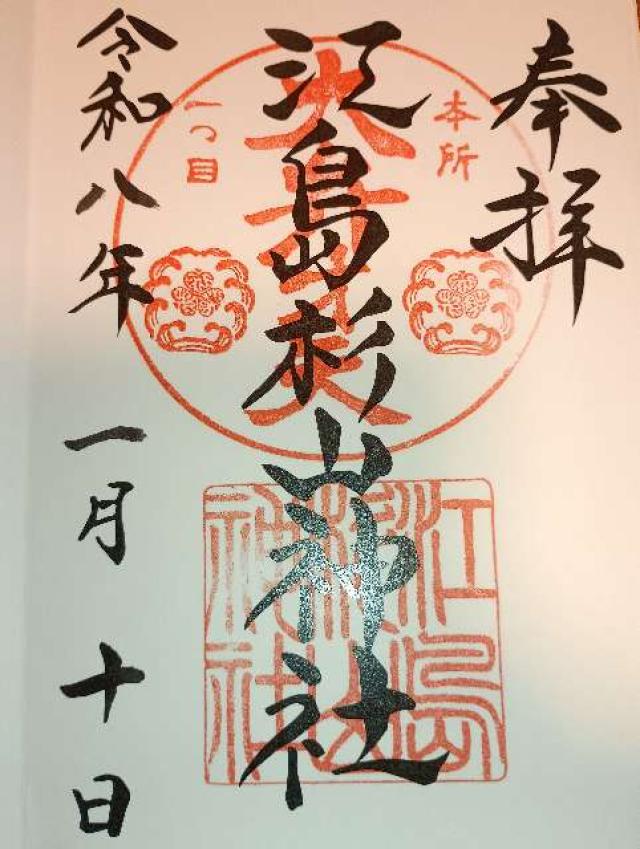 奉拝
本所
江島杉山神社
一つ目
江島
杉山
神社
令和八年
一月十日